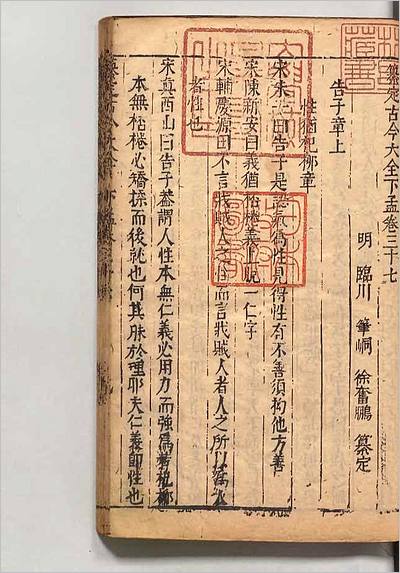 纂定古今大全下孟卷三十七
明 臨川 筆峒 徐奮鵬 纂定
告子章上
性猶杞柳章
宋朱子曰告子是認氣爲性見得性有不善須拘他方善
宋陳新安曰義猶桮棬義上脫一仁字
宋輔慶源曰不言戕賊人之性而言戕賊人者人之所以爲人
者性也
宋真西山曰告子蓋謂人性本無仁義必用力而強爲若杞柳
本無桮棬必矯揉而後就也何其昧於理耶夫仁義即性也